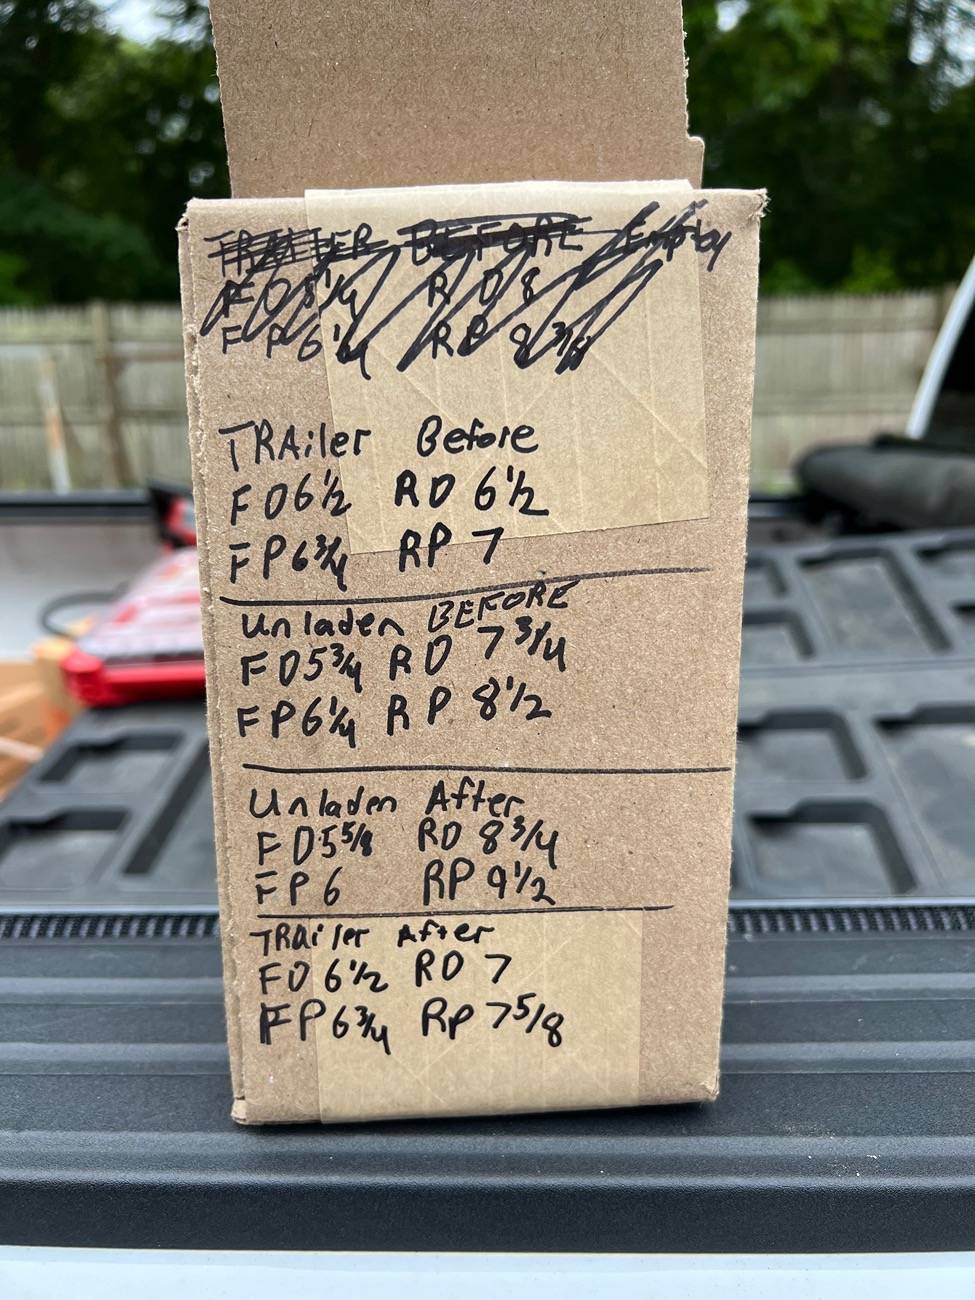 TRAILER BEFORE Empty
FD 8 1/4 RD 8
FP 6 1/4 RP 8 3/4
TRAiler Before
FD 6 1/2 RD 6 1/2
FP 6 3/4 RP 7
Unladen BEFORE
FD 5 3/4 RD 7 3/4
FP 6 1/4 RP 8 1/2
Unladen After
FD 5 5/8 RD 8 3/4
FP 6 RP 9 1/2
TRAiler After
FD 6 1/2 RD 7
FP 6 3/4 RP 7 5/8